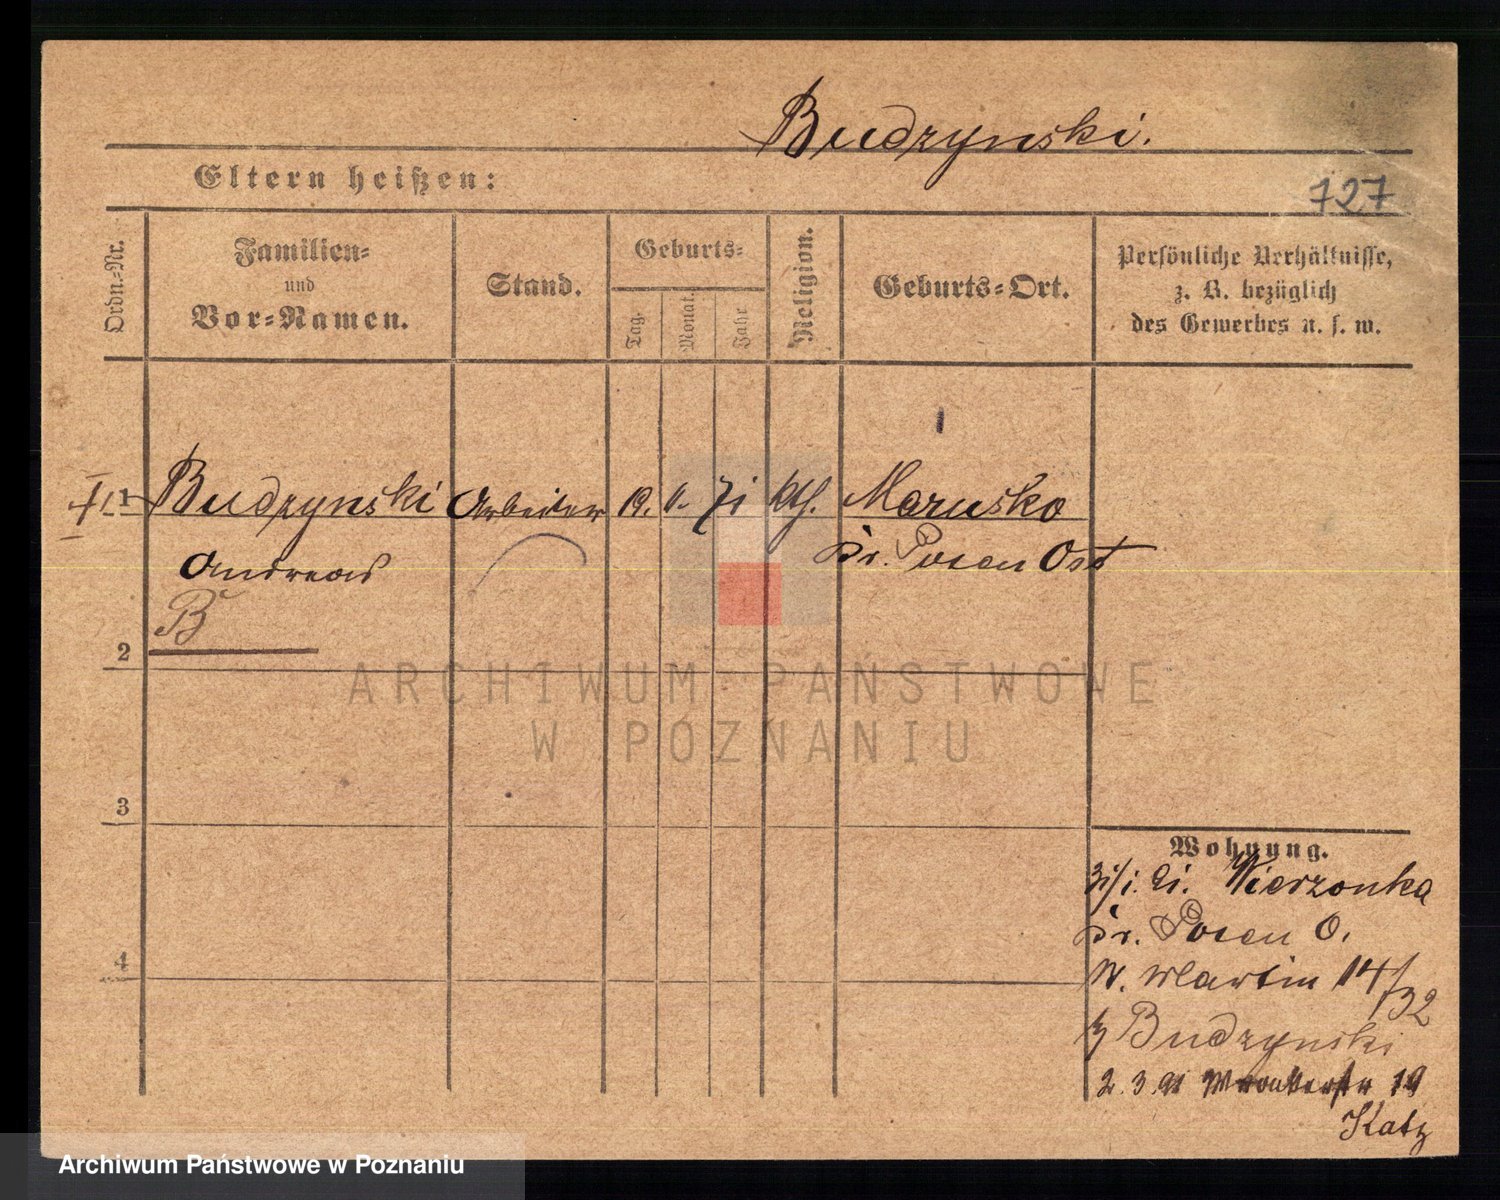 Budzynski.
Eltern heißen:
727
Ordn.-Nr.
Familien-
und
Vor-Namen.
Stand.
Geburts-
Tag.
Monat.
Jahr
Religion.
Geburts-Ort.
Persönliche Verhältnisse,
z. B. bezüglich
des Gewerbes u. s. w.
1 Budzynski Arbeiter 19. 11. 71 kth. Maruško
Andreas Kr. Posen Ost
B
2
3
4
Wohnung.
Wierzonka
Kr. Posen O.
St. Martin 14/32
b/ Budzynski
2. 3. 91 Wronkerstr 19
Katz
ARCHIWUM PAŃSTWOWE
W POZNANIU
Archiwum Państwowe w Poznaniu